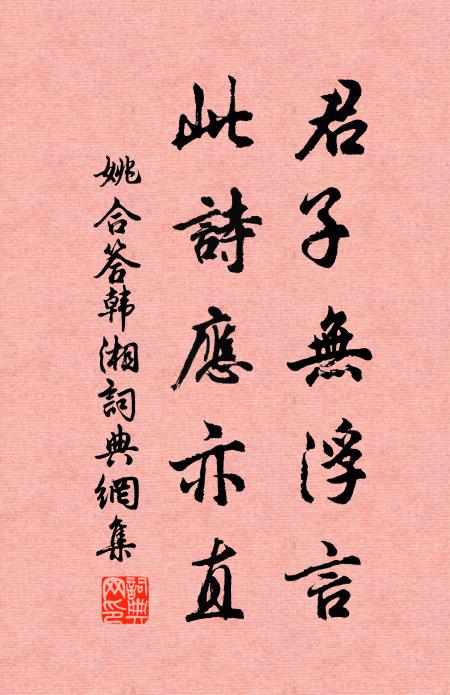 君子無浮言
此詩應亦直
姚合答韩湘詞典網集
詞典網印